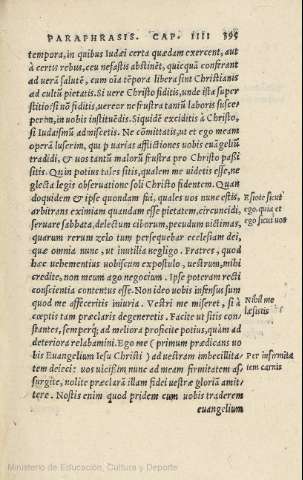 PARAPHRASIS. CAP. IIII 395
tempora, in quibus Iudæi certa quædam exercent, aut
à certis rebus, ceu nefastis abstinẽt, quicquã conferant
ad verã salutẽ, cum oĩa tẽpora libera sint Christianis
ad cultũ pietatis. Si vere Christo fiditis, unde ista super
stitio? si nõ fiditis, vereor ne frustra tantũ laboris susce=
perim, in vobis instituẽdis. Siquidẽ exciditis à Christo,
si Iudaismũ admiscetis. Ne cõmittatis, ut et ego meam
operã luserim, qui ꝑ varias afflictiones vobis euãgeliũ
tradidi, & vos tantũ malorũ frustra pro Christo passi
sitis. Quin potius tales sitis, qualem me videtis esse, ne
glecta legis obseruatione soli Christo fidentem. Quan
doquidem & ipse quondam fui, quales vos nunc estis,
arbitrans eximiam quandam esse pietatem, circuncidi,
seruare sabbata, delectum ciborum, pecudum victimas,
quarum rerum zelo tum persequebar ecclesiam dei,
quæ omnia nunc, ut inutilia negligo. Fratres, quod
hæc vehementius vobiscum expostulo, vestrum, mihi
credite, non meum ago negocium. Ipse poteram recti
conscientia contentus esse. Non ideo vobis infensus sum
quod me affeceritis iniuria. Vestri me miseret, si à
cœptis tam præclaris degeneretis. Facite ut sitis con=
stantes, semperq́; ad meliora proficite potius, quàm ad
deteriora relabamini. Ego me (primum prædicans vo
bis Euangelium Iesu Christi) ad vestram imbecillita=
tem deieci: vos vicissim nunc ad meam firmitatem as=
surgite, nolite præclarã illam fidei vestræ gloriã amit=
tere. Nostis enim quod pridem cum vobis traderem
euangelium
Estote sicut
ego, quia et
ego sicut vos
Nihil me
læsistis
Per infirmitã
tem carnis
Ministerio de Educación, Cultura y Deporte